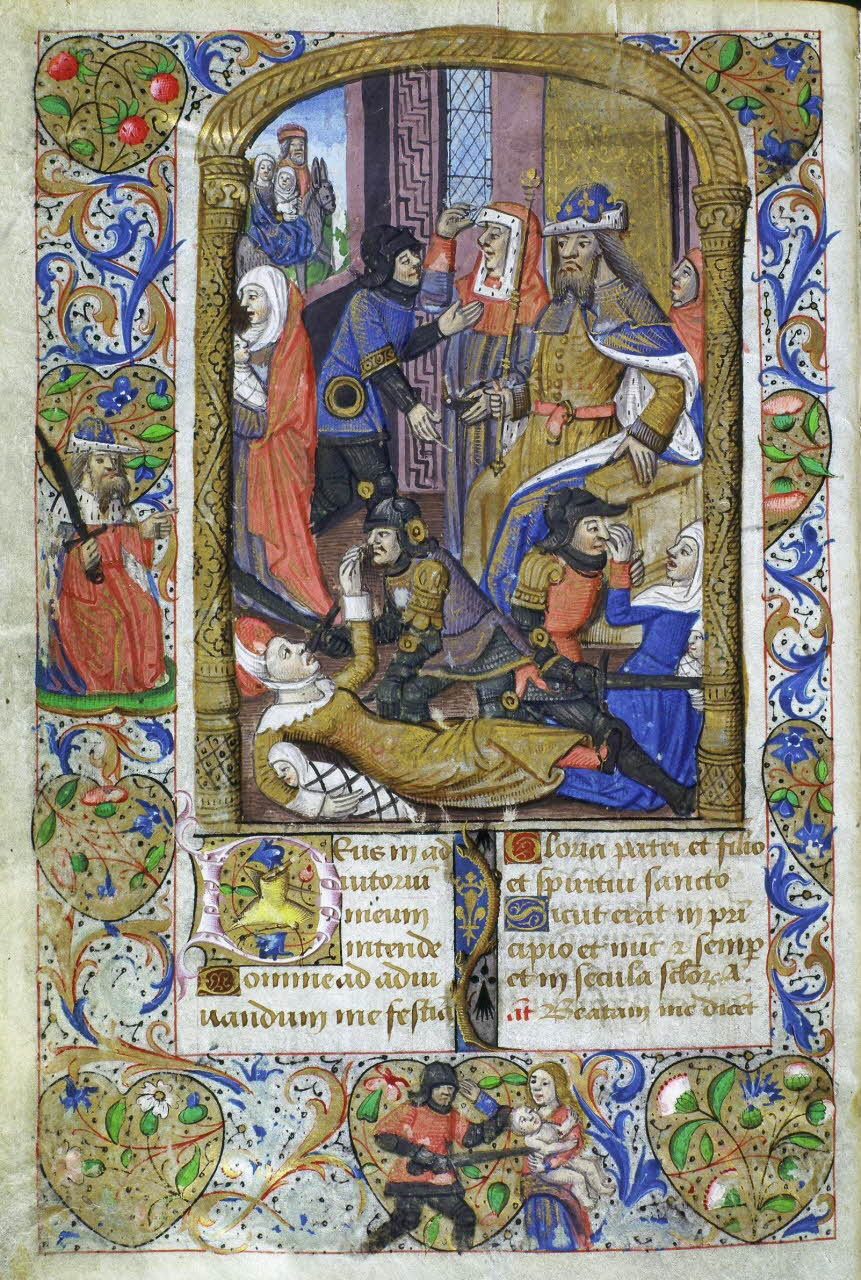 Deus in ad
iutoriu
meum
intende
Domine ad adiu
uandum me festia
Gloria patri et filio
et spiritui sancto
Sicut erat in pri
cipio et nuc z semp
et in secula sclor. A.
at Beatam me dicet